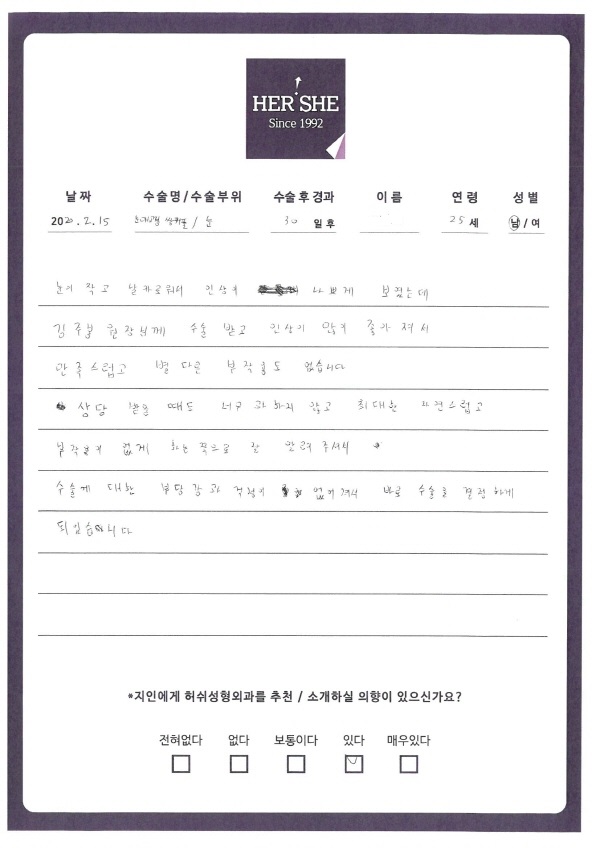 HER SHE
Since 1992
날짜 수술명/수술부위 수술 후 경과 이름 연령 성별
2020.2.15 쌍커풀 / 눈 30 일 후 25 세 남 / 여
눈이 작고 날카로워서 인상이 나쁘게 보였는데
김주봉 원장님께 수술 받고 인상이 많이 좋아져서
만족스럽고 별 다른 부작용도 없습니다
상담 받을 때도 너무 과하지 않고 최대한 자연스럽고
부작용이 없게 하는 쪽으로 잘 안려 주셔서
수술에 대한 부담감과 걱정이 없어져서 바로 수술을 결정하게
되었습니다
*지인에게 허쉬성형외과를 추천 / 소개하실 의향이 있으신가요?
전혀없다 없다 보통이다 있다 매우있다